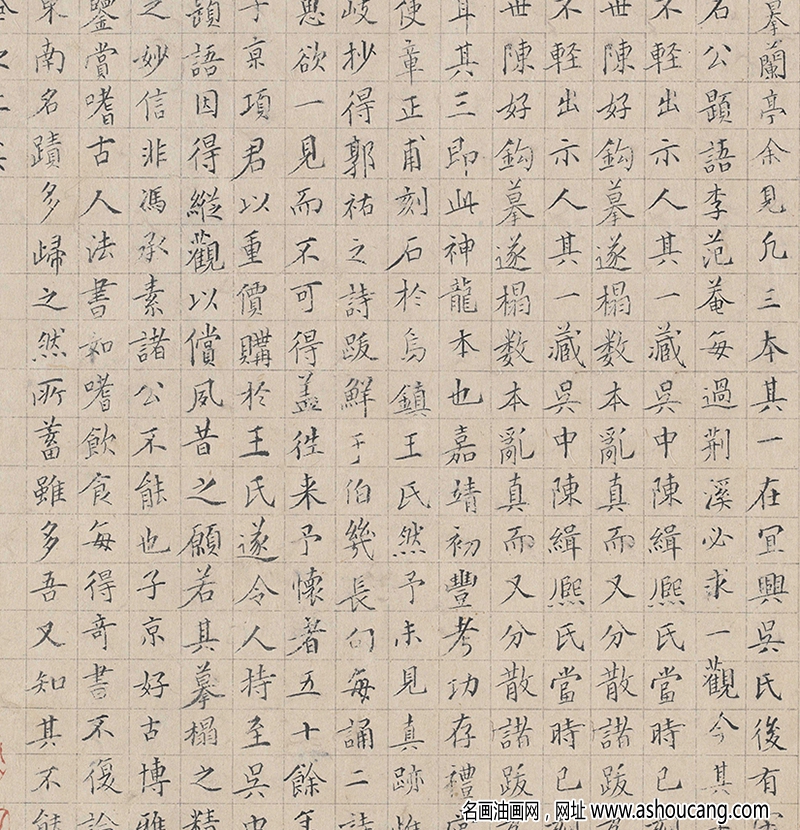 摹蘭亭余見凡三本其一在宜興吳氏後有
石公題語李范菴每過荆溪必求一觀今其
不輕出示人其一藏吳中陳緝熈氏當時已
世陳好鈎摹遂榻数本亂真而又分散諸跋
不輕出示人其一藏吳中陳緝熈氏當時已
世陳好鈎摹遂榻数本亂真而又分散諸跋
耳其三即此神龍本也嘉靖初豐考功存禮
使章正甫刻石於烏鎮王氏然予未見真跡惟
岐抄得郭祐之詩跋鮮于伯幾長句每誦二詩
思欲一見而不可得盖往来予懷者五十餘年
子京項君以重價購於王氏遂令人持至吳中
題語因得縱觀以償夙昔之願若其摹榻之精
之妙信非馮承素諸公不能也子京好古博雅
鑒賞嗜古人法書如嗜飲食每得竒書不復論
東南名蹟多歸之然所蓄雖多吾又知其不能
名画油画网，网址 www.ashoucang.com